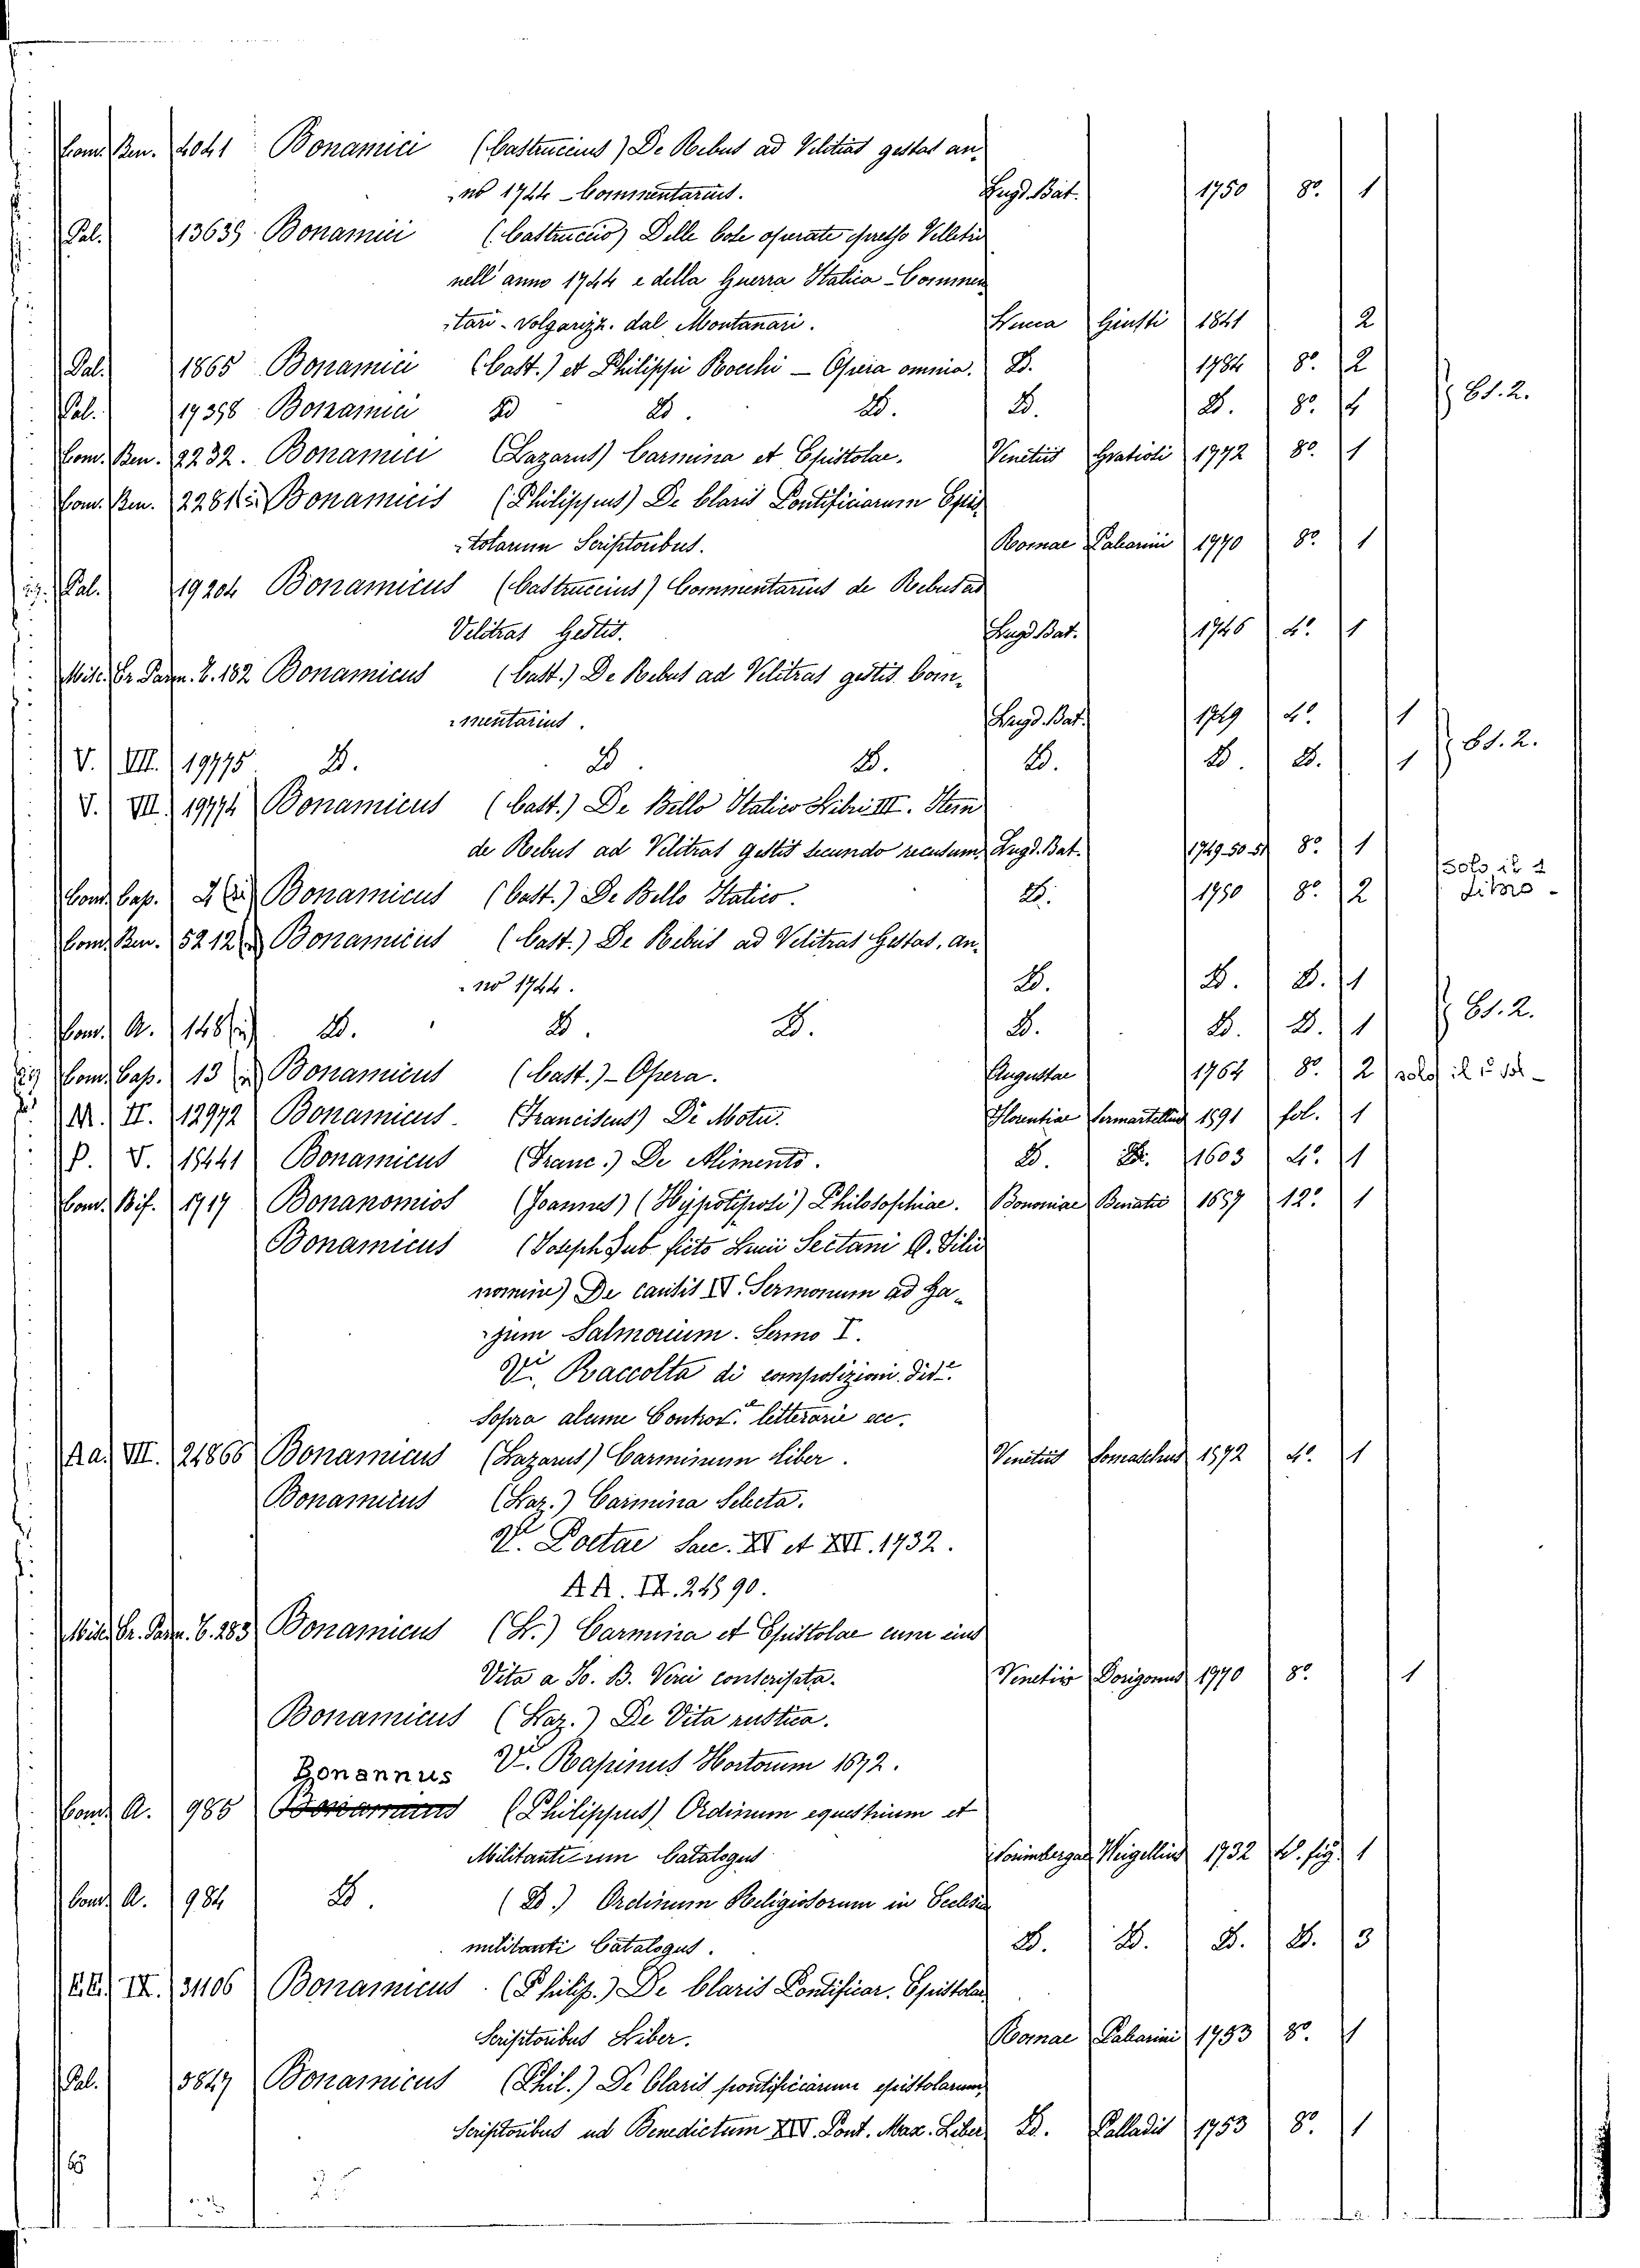 Com. Ben. 4041 Bonamici (Castruccius) De Rebus ad Velitras gestas an-
-no 1744 - Commentarius. Lugd. Bat. 1750 8º. 1
Pal. 13639 Bonamici (Castruccio) Delle Cose operate presso Velletri
nell' anno 1744 e della Guerra Italica - Commen
-tari - Volgarizz. dal Montanari. Lucca Giusti 1841 2
Pal. 1865 Bonamici (Cast.) et Philippi Rocchi - Opera omnia. D. 1784 8º. 2
Pal. 17398 Bonamici D D. D. D. D. 8º. Es. 2.
Com. Ben. 2232. Bonamici (Lazarus) Carmina et Epistolae. Venetiis Gratioli 1772 8º. 1
Com. Ben. 2281 Bonamicis (Philippus) De Claris Pontificiarum Epis
-tolarum Scriptoribus. Romae Palearini 1770 8º. 1
Pal. 19204 Bonamicus (Castruccius) Commentarius de Rebus ad
Velitras Gestis. Lugd. Bat. 1746 4º. 1
Misc. Er. Parm. 6. 182 Bonamicus (Cast.) De Rebus ad Velitras gestis Com-
-mentarius. Lugd. Bat. 1749 4º. 1
V. VIII. 19775 D. D. D. D. D. D. 1 Es. 2.
V. VIII. 19774 Bonamicus (Cast.) De Bello Italico Libri III. Item
de Rebus ad Velitras gestis secundo recusum Lugd. Bat. 1749-50-51 8º. 1
Com. Cap. 2 Bonamicus (Cast.) De Bello Italico. D. 1750 8º. 2 solo il 2 libro -
Com. Ben. 5212 Bonamicus (Cast.) De Rebus ad Velitras Gestas, an-
-no 1744. D. D. D. 1
Com. A. 148 D. D. D. D. D. D. 1 Es. 2.
Com. Cap. 13 Bonamicus (Cast.) - Opera. Augustae 1764 8º. 2 solo il 1º vol -
M. II. 12972 Bonamicus (Franciscus) De Motu. Florentiae Sermartellius 1591 fol. 1
P. V. 18441 Bonamicus (Franc.) De Alimento. D. D. 1603 4º. 1
Com. Bif. 1717 Bonanomios (Joannes) (Hypotiposi) Philosophiae. Bononiae Benatii 1657 12º. 1
Bonamicus (Joseph sub ficto Lucii Sectani Q. Filii
nomine) De causis IV. Sermonum ad Ga-
-jum Salmorium. Sermo I.
Vi. Raccolta di composizioni did.e
Sopra alcune Controv.e letterarie ecc.
Aa. VII. 21866 Bonamicus (Lazarus) Carminum Liber. Venetiis Somaschus 1572 4º. 1
Bonamicus (Laz.) Carmina Selecta.
V. Poetae Saec. XV et XVI. 1732.
AA. IX. 24590.
Misc. Er. Parm. 6. 283 Bonamicus (L.) Carmina et Epistolae cum eius
Vita a Jo. B. Verci conscripta. Venetiis Dorigonus 1770 8º. 1
Bonamicus (Laz.) De Vita rustica.
Bonannus V. Rapinus Hortorum 1672.
Com. A. 985 (Philippus) Ordinum equestrium et
Militantium Catalogus Norimbergae Weigellius 1732 4º. fig. 1
Com. A. 984 D. (D.) Ordinum Religiosorum in Ecclesia
militanti Catalogus. D. D. D. D. 3
EE. IX. 31106 Bonamicus (Philip.) De Claris Pontificiar. Epistolar
Scriptoribus Liber. Romae Palearini 1753 8º. 1
Pal. 5847 Bonamicus (Phil.) De Claris pontificiarum epistolarum
Scriptoribus ad Benedictum XIV. Pont. Max. Liber D. Palladis 1753 8º. 1